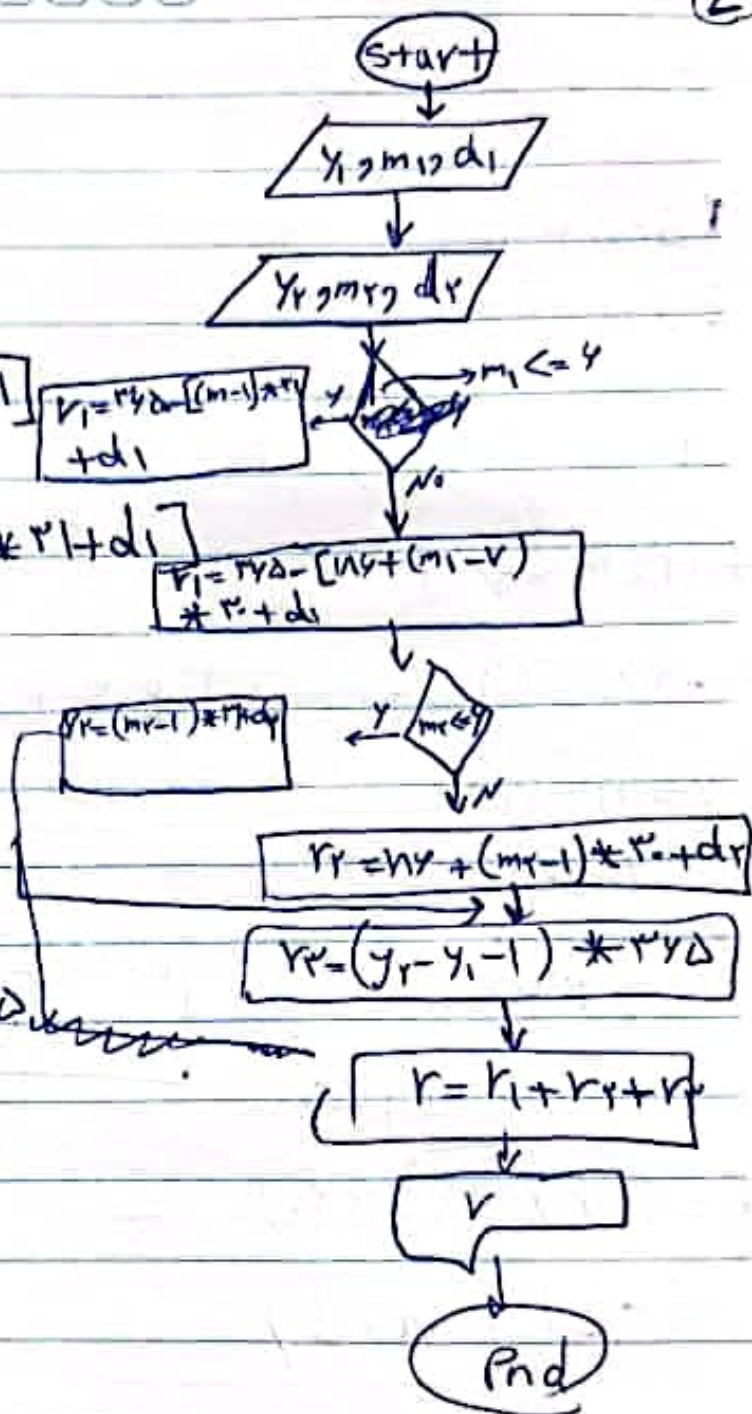 2
start
y₁, m₁, d₁
y۲, m۲, d۲
m₁ <= ۶
y
r₁ = ۳۶۵ - [(m-1) * ۳۱
+ d₁
1]
No
* ۳۱ + d₁]
r₁ = ۳۶۵ - [۱۸۶ + (m₁ - ۷)
* ۳۰ + d₁
m۲ <= ۶
y
r۲ = (m۲-1) * ۳۱ + d۲
N
r۲ = ۱۸۶ + (m۲-1) * ۳۰ + d۲
r۳ = (y۲ - y₁ - 1) * ۳۶۵
r = r₁ + r۲ + r۳
r
End